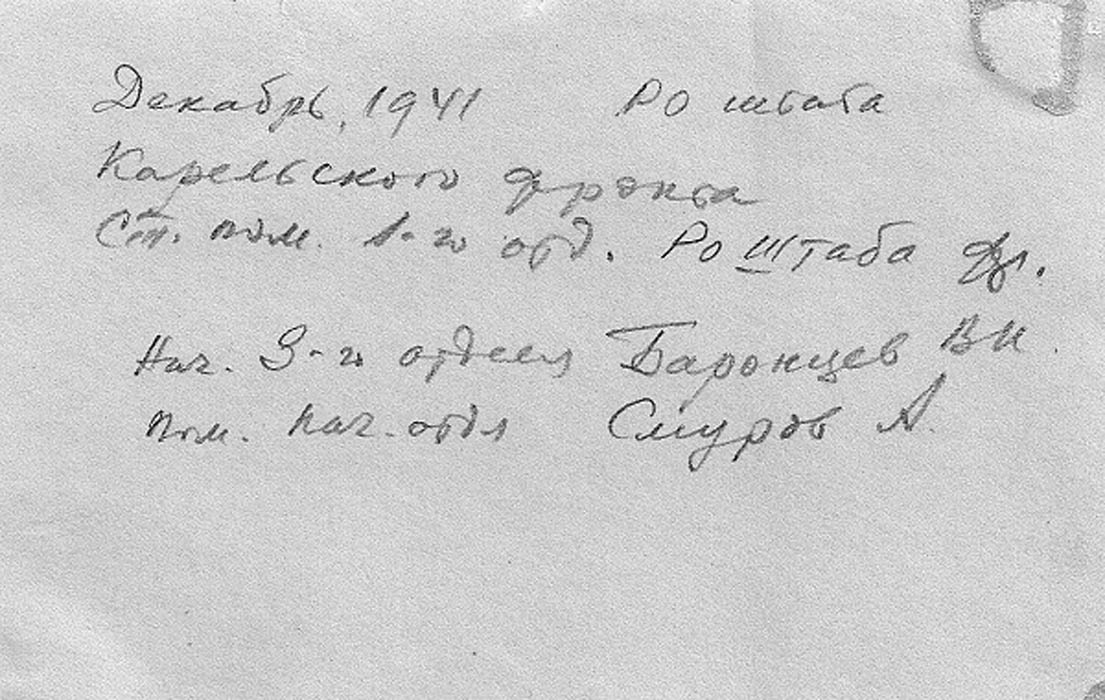 Декабрь, 1941 РО штаба
Карельского фронта
Ст. пом. 1-го отд. РО Штаба фр.
Нач. 3-го отдела Баронцев В И.
пом. нач. отдя Смуров А.